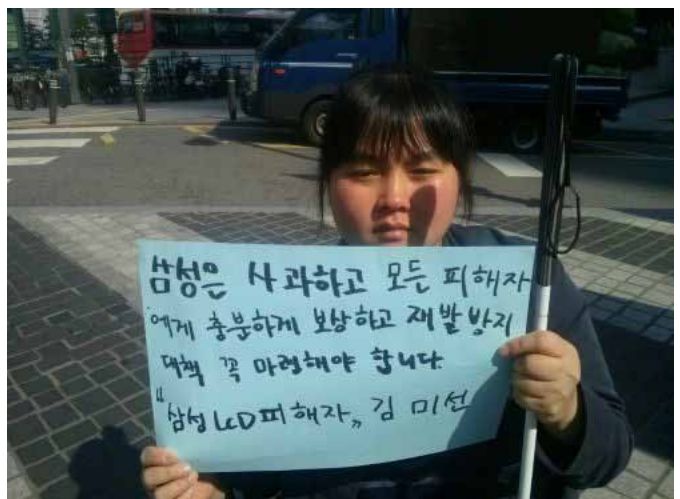 삼성은 사과하고 모든 피해자
에게 충분하게 보상하고 재발 방지
대책 꼭 마련해야 합니다.
"삼성 LCD피해자„ 김 미선